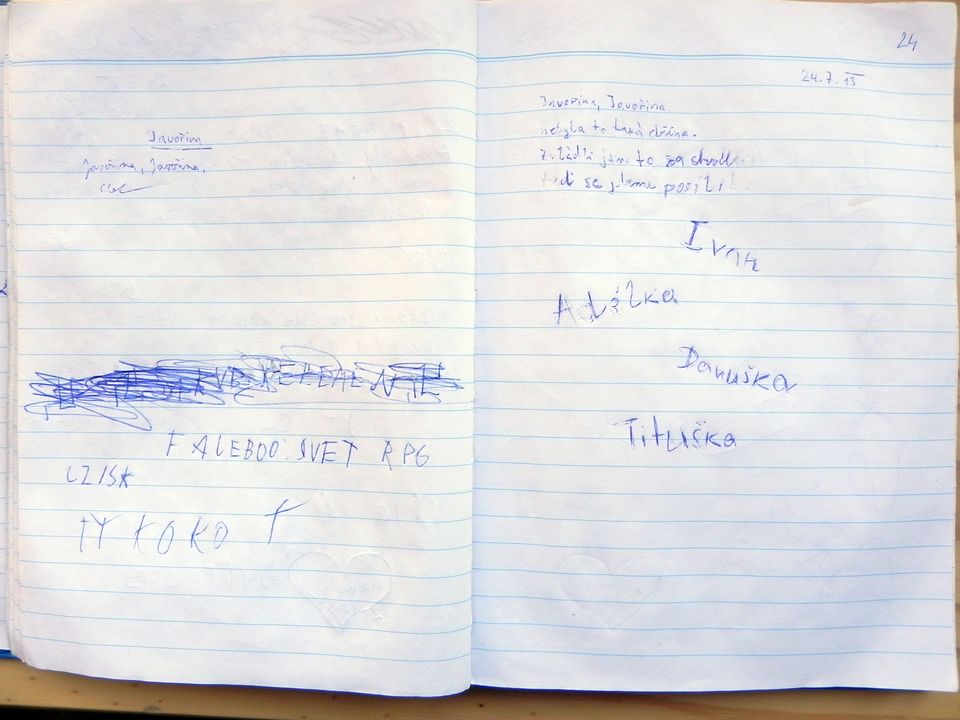 Javořina
Javořina, Javořina,
FALEBOO: SVET RPG
CZ/SK
TY KOKO T
24
24.7.15
Javořina, Javořina
nebyla to taká dřina.
jsme to za chvilku
se jdeme posílit
Ivan
Adélka
Danuška
Tituška